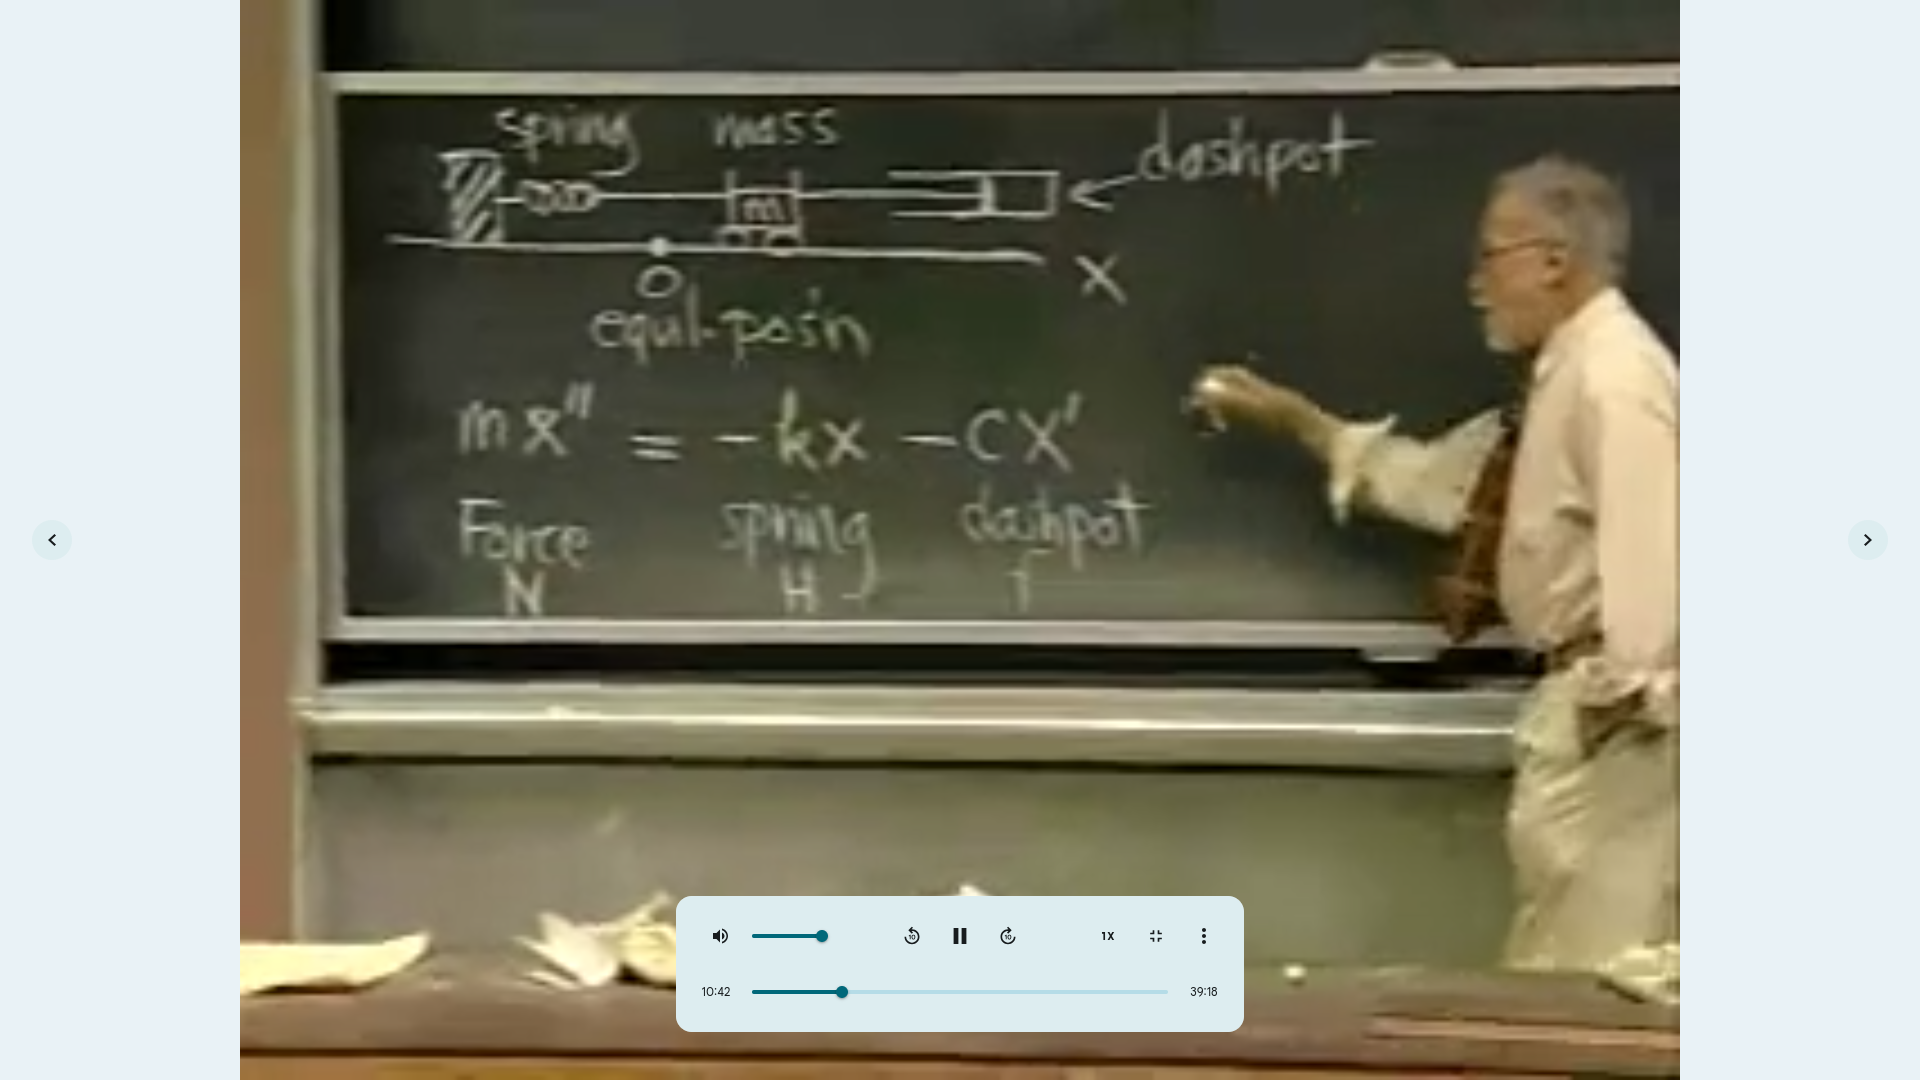 spring mass
dashpot
m
O
x
equil. pos'n
mx'' = -kx - cx'
Force spring dashpot
N H
1X
10:42 39:18